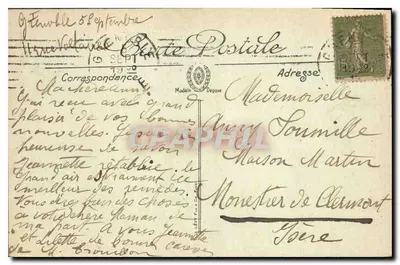 Grenoble 5 Septembre
Carte Postale
Correspondance
Adresse
Modèle Déposé
Ma chère Anny
J'ai reçu avec grand
plaisir de vos bonnes
nouvelles.
heureuse de savoir
Jeannette rétablie le
Grand air est vraiment le
meilleur des remèdes.
Vous direz bien des choses
à votre chère Maman de
ma part. A vous Jeannette
et Arlette de bonnes caresses
de M.
Mademoiselle
Anny Soumille
Maison Martin
Monestier de Clermont
Isère
CARTAPHILIA